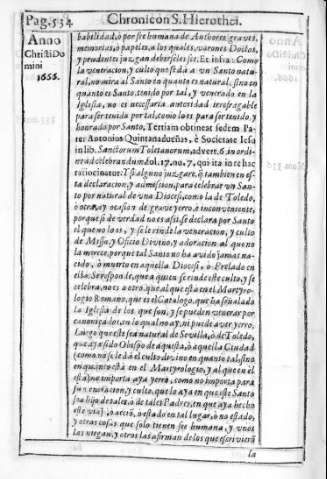 Pag. 534. Chronicon S. Hierothei.
Anno
Christi Do
mini
1666.
babilidad, ò por fe humana de Authores graves,
memorias, ò papeles, a los quales, varones Doctos,
y prudentes juzgan deberseles fee. Et infra: Como
la veneracion, y culto que se dà a un Santo natu-
ral, no mira al Santo en quanto es natural, sino en
quanto es Santo, tenido por tal, y venerado en la
Iglesia, no es necessaria autoridad irrefragable
para ser tenido por tal, como lo es para ser tenido, y
honrado por Santo. Tertiam obtineat sedem Pa-
ter Antonius Quintanadueñas, è Societate Iesu
in lib. Sanctorum Toletanorum, advert. 6. in ordi-
ne ad celebrandum dol. 17. no. 7. qui ita in re hac
ratiocinatur: Y si alguno juzgare, q̃ tambien en es-
ta declaracion, y admission, para celebrar un San-
to por natural de una Diocesi, como la de Toledo,
ò otra, ay ocasion de grave yerro, è inconveniente,
porque si de verdad no es assi, se declara por Santo
el que no lo es, y se le rinde la veneracion, y culto
de Missa, y Oficio Divino, y adoracion al que no
la merece, porque tal Santo no ha avido jamàs na-
cido, ò muerto en aquella Diocesi, ò Perlado en
ella: Se responde, que a quien se rinde este culto, y se
celebra, no es a otro, que al que està en el Martyro-
logio Romano, que es el Catalogo, que ha señalado
la Iglesia de los que son, y se pueden venerar por
canonizados, en lo qual no ay, ni puede aver yerro.
Luego que este sea natural de Sevilla, ò de Toledo,
que aya sido Obispo de aquesta, ò aquella Ciudad
(como no se le dà el culto divino en quanto tal, sino
en quanto està en el Martyrologio, y al que en èl
està) no importa aya yerro, como no importa para
su veneracion, y culto, que lo aya en que este Santo
sea hijo de tales, ò de tales Padres, en que aya hecho
este viaje, ò acciõ, ò estado en tal lugar, ò no estado,
y otras cosas que solo tienen fee humana, y unos
las niegan, y otros las afirman de los que escriviero
la